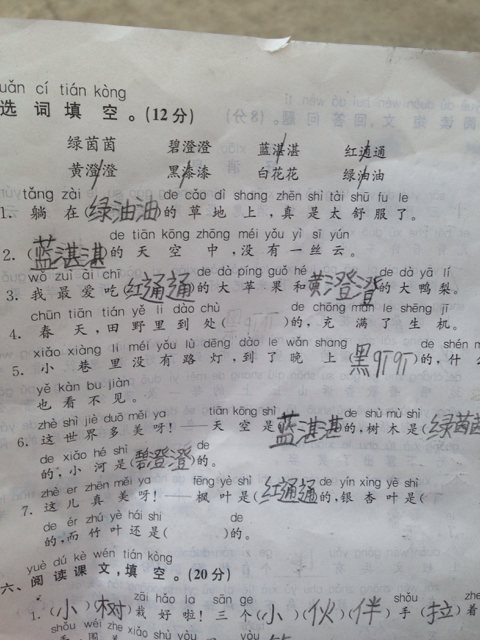 uǎn cí tián kòng
选词填空。(12分)
绿茵茵 碧澄澄 蓝湛湛 红通通
黄澄澄 黑漆漆 白花花 绿油油
tǎng zài de cǎo dì shang zhēn shì tài shū fu le
1. 躺在(绿油油)的草地上,真是太舒服了。
de tiān kōng zhōng méi yǒu yì sī yún
2. (蓝湛湛)的天空中,没有一丝云。
wǒ zuì ài chī de dà píng guǒ hé de dà yā lí
3. 我最爱吃(红通通)的大苹果和(黄澄澄)的大鸭梨。
chūn tiān tián yě lǐ dào chù de chōng mǎn le shēng jī
4. 春天,田野里到处( )的,充满了生机。
xiǎo xiàng li méi yǒu lù dēng dào le wǎn shang de shén m
5. 小巷里没有路灯,到了晚上(黑)的,什么
yě kàn bu jiàn
也看不见。
zhè shì jiè duō měi ya tiān kōng shì de shù mù shì
6. 这世界多美呀!——天空是蓝湛湛的,树木是(绿茵茵
de xiǎo hé shì de
的,小河是(碧澄澄)的。
zhè er zhēn měi ya fēng yè shì de yín xìng yè shì
7. 这儿真美呀!——枫叶是(红通通的,银杏叶是(
de ér zhú yè hái shi de
的,而竹叶还是( )的。
yuè dú kè wén tián kòng
六、阅读课文,填空。(20分)
zāi hǎo la sān ge shǒu zhe
1. (小)(树)栽好啦!三个(小)(伙)(伴)手(拉)着